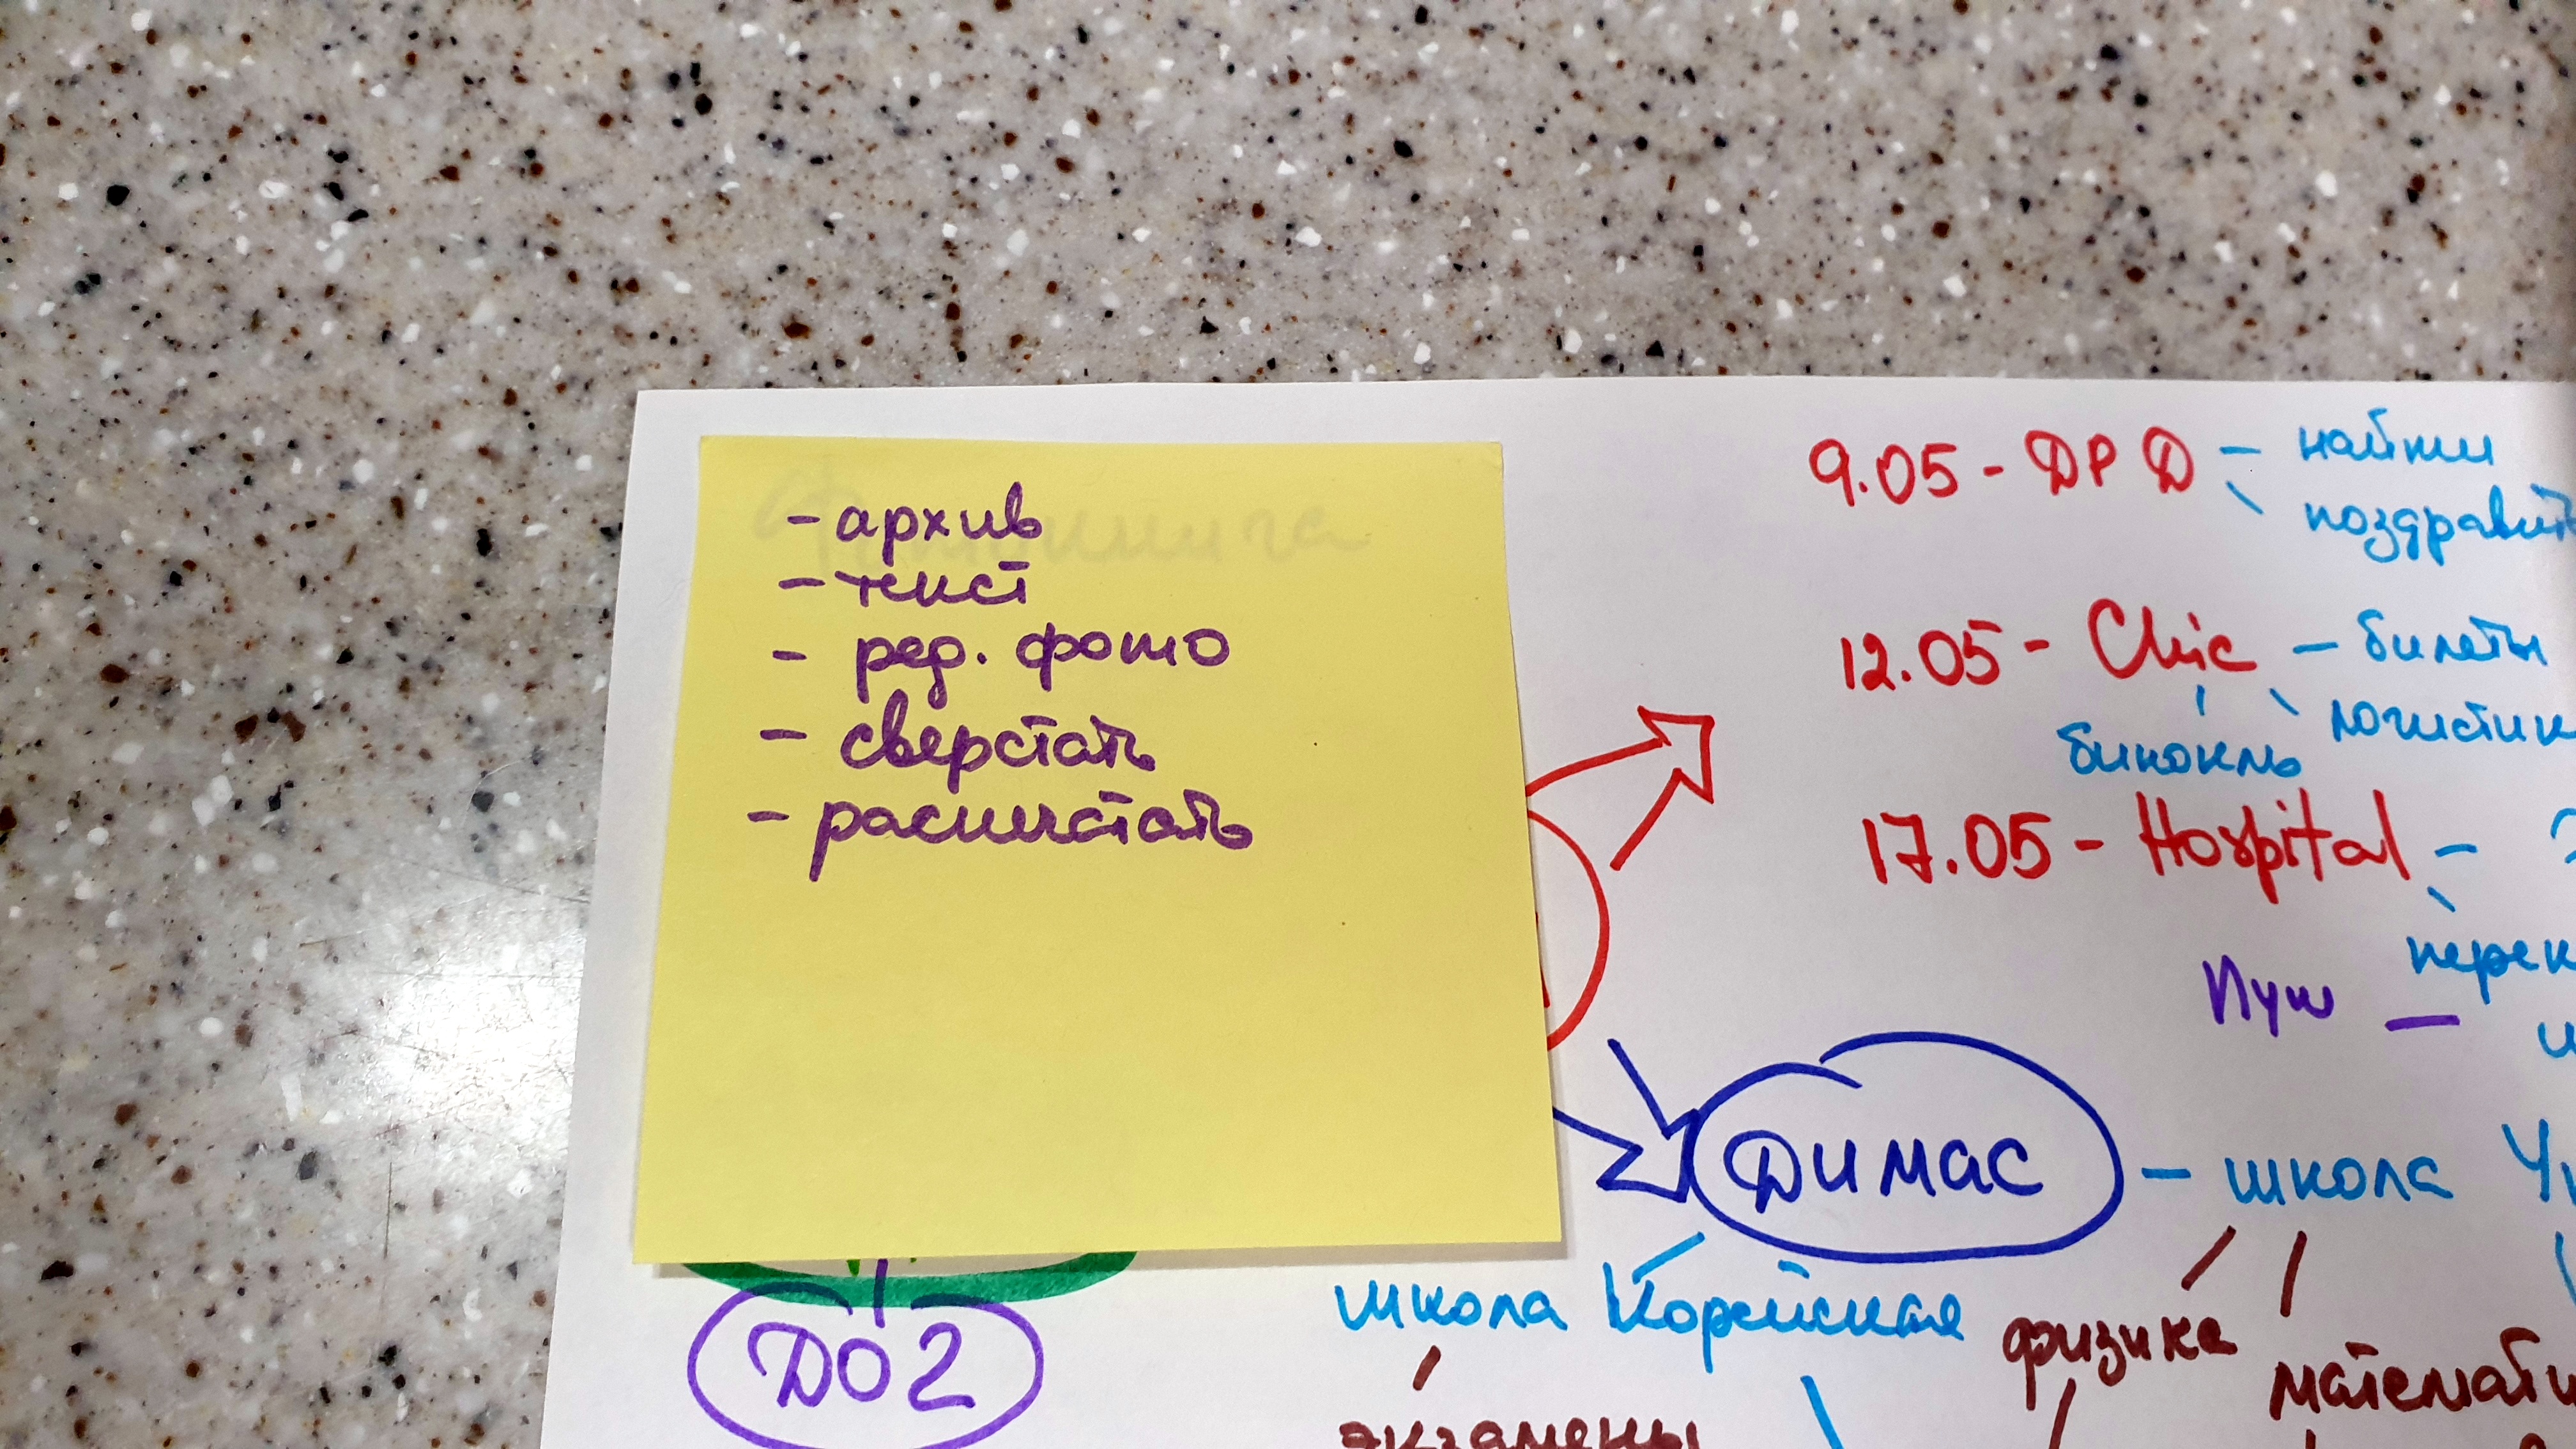 - архив
- текст
- ред. фото
- сверстать
- расчистать
9.05 - ДРД - найти
поздравит
12.05 - Chic - билеты
бинокль логистик
17.05 - Hospital -
перек
Димас - школа
школа Корейская
физика
математи
экзамены
ДО2